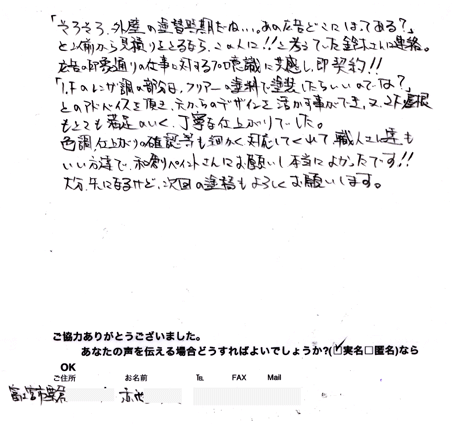 「そろそろ、外壁の塗替時期だね…。あの広告どこにはってある?」
と以前から見積りをとるなら、この人に!!と考えていた鈴木さんに連絡。
広告の印象通りの仕事に対するプロ意識に共感し、即契約!!
「1.Fのレンガ調の部分は、クリアーの塗料で塗装したらいいのでは?」
とのアドバイスを頂き、元からのデザインを活かす事ができ、又、2F、屋根
もとても満足のいく、丁寧な仕上がりでした。
色調、仕上がりの確認等も細かく対応してくれて、職人さん達も
いい方達で、和創ペイントさんにお願いし本当によかったです!!
大分、先になるけど、次回の塗替もよろしくお願いします。
ご協力ありがとうございました。
あなたの声を伝える場合どうすればよいでしょうか?(☑実名□匿名)なら
OK
ご住所 お名前 Tel FAX Mail
富士宮市